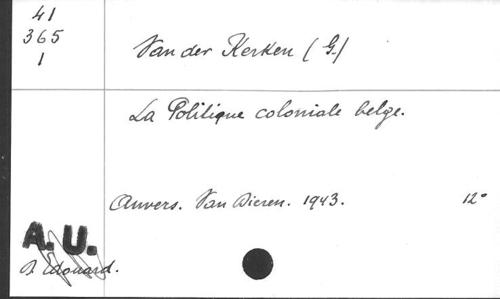 41
365
1
Van der Kerken (G.)
La Politique coloniale belge.
Anvers. Van Dieren. 1943. 12°
A. U.
Edouard.